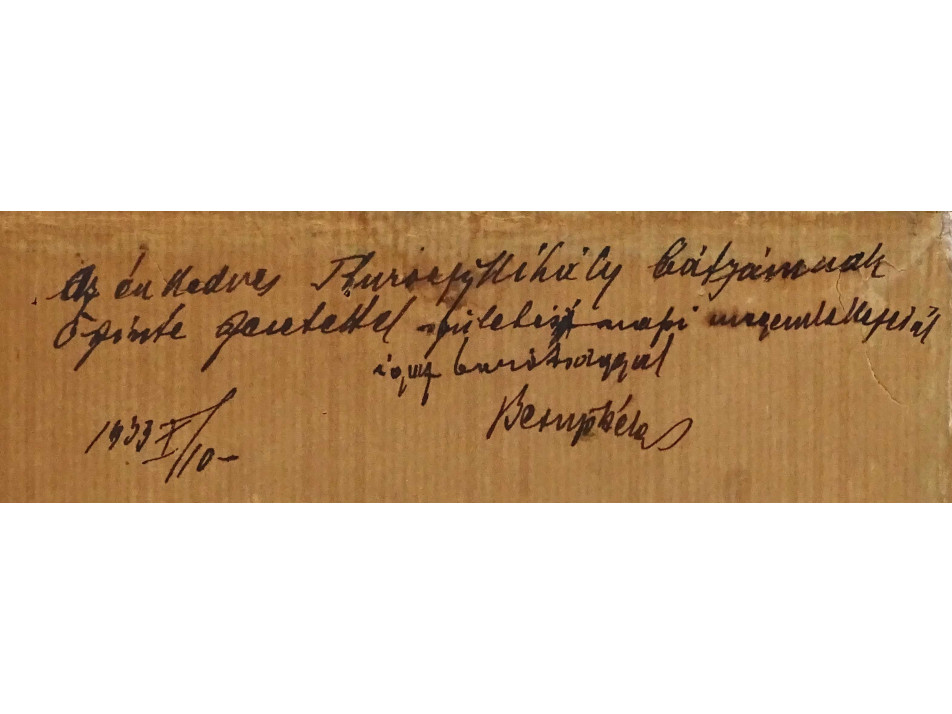 Az én kedves Mihály bátyámnak
Őszinte szeretettel születés napi megemlékezésül
igaz barátsággal
1933 X/10-